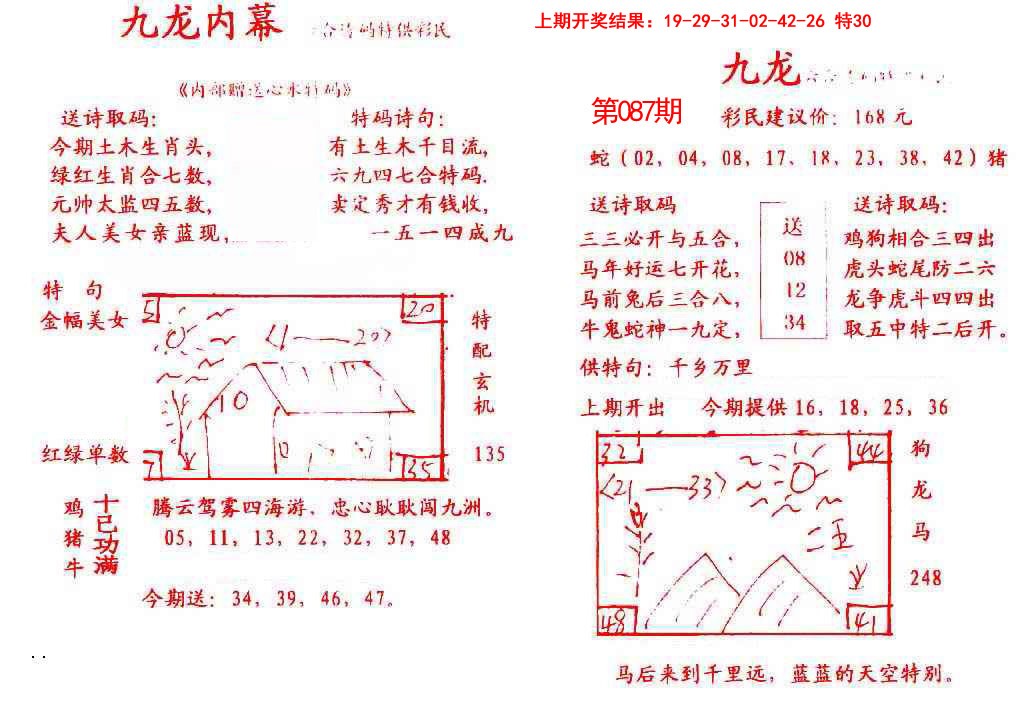 九龙内幕
上期开奖结果：19-29-31-02-42-26 特30
《内部赠送心水特码》
送诗取码：
今期土木生肖头，
绿红生肖合七数，
元帅太监四五数，
夫人美女亲蓝现，
特码诗句：
有土生木千目流，
六九四七合特码.
卖定秀才有钱收，
一五一四成九
特 句
金幅美女
红绿单数
5
20
〈1——20〉
10
0
7
35
特
配
玄
机
135
鸡
猪
牛
十已功满
腾云驾雾四海游、忠心耿耿闯九洲。
05，11，13，22，32，37，48
今期送：34，39，46，47。
. .
九龙
第087期
彩民建议价：168元
蛇（02，04，08，17、18，23，38，42）猪
送诗取码
三三必开与五合，
马年好运七开花，
马前兔后三合八，
牛鬼蛇神一九定，
送
08
12
34
送诗取码：
鸡狗相合三四出
虎头蛇尾防二六
龙争虎斗四四出
取五中特二后开。
供特句：千乡万里
上期开出 今期提供16，18，25，36
32
44
〈21——33〉
48
41
狗
龙
马
248
马后来到千里远，蓝蓝的天空特别。